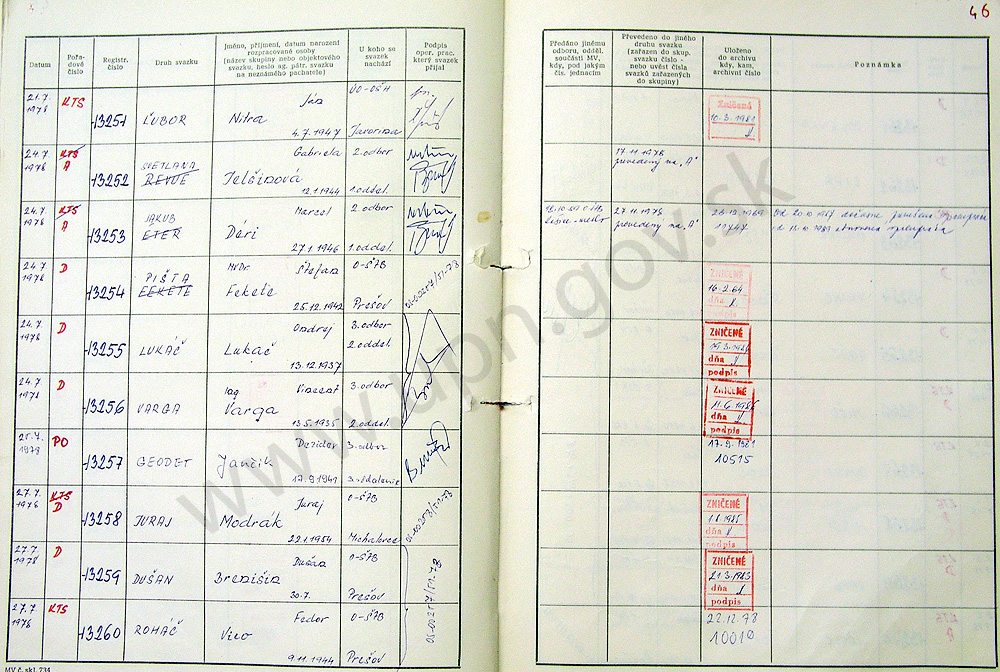 46
Datum
Pořadové číslo
Registr. číslo
Druh svazku
Jméno, příjmení, datum narození rozpracované osoby
(název skupiny nebo objektového svazku, heslo ag. pátr. svazku na neznámého pachatele)
U koho se svazek nachází
Podpis oper. prac. který svazek přijal
Předáno jinému odboru, odděl. součásti MV, kdy, pod jakým čís. jednacím
Převedeno do jiného druhu svazku (zařazen do skup. svazku číslo - nebo uvést čísla svazků zařazených do skupiny)
Uloženo do archivu kdy, kam, archivní číslo
Poznámka
21.7. 1978 KTS 13251 ĽUBOR Ján Nitra 4.7.1947 Javorina
Zničené 10.3.1981
24.7. 1978 KTS A 13252 SVETLANA REVUE Gabriela Jelšinová 12.1.1944 2.odbor 1.oddel.
17.11.1978 prevedený na "A"
24.7. 1978 KTS A 13253 JAKUB ETER Marcel Déri 27.1.1946 2.odbor 1.oddel.
27.11.1978 prevedený na "A"
24.7 1978 D 13254 PIŠTA FEKETE MUDr. Štefan Fekete 25.12.1942 O-ŠTB Prešov
ZNIČENÉ dňa podpis
24.7 1978 D 13255 LUKÁČ Ondrej Lukáč 13.12.1937 3.odbor 2.oddel.
ZNIČENÉ dňa podpis
24.7 1978 D 13256 VARGA Ing Vincent Varga 13.5.1935 3.odbor 2.oddel.
ZNIČENÉ dňa podpis
PO 13257 GEODET Dezider Jančík 17.9.1941 3.odbor
17.9.1981
10515
27.7. 1978 KTS D 13258 JURAJ Juraj Modrák 22.1.1954 O-ŠTB Michalovce
ZNIČENÉ 1.6.1985 dňa podpis
27.7. 1978 D 13259 DUŠAN Dušan 30.7. O-ŠTB Prešov
ZNIČENÉ 21.3.1983 dňa podpis
27.7 1978 KTS 13260 ROHÁČ Fedor Vico 9.11.1944 O-ŠTB Prešov
22.12.78
10010
MV č. skl. 734
www.upn.gov.sk